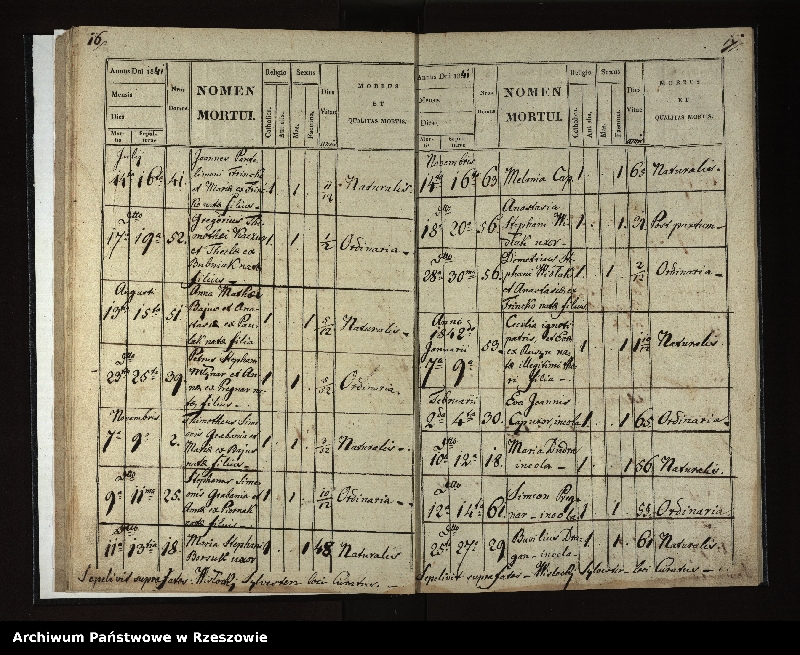 16
Annus Dni 1841
Mensis
Dies
Mortis
Sepulturae
Nrus Domus
NOMEN
MORTUI.
Religio
Catholica.
Aut alia.
Sexus
Mas.
Foemina.
Dies Vitae
MORBUS
ET
QUALITAS MORTIS.
Julij
14ta 16ta 41. Joannes Pante
limoni Trincho
et Maria ex
nata filius 1 1 11/12 Naturalis.
Dtto
17a 19a 52. Gregorius Thi
mothei
et Thecla ex
Bubniak nata
filius 1. 1. 1/2 Ordinaria
Augusti
13tia 15ta 51. Anna Mathaei
Bajus et Ana
stasia ex
nata filia 1 1 5/12 Naturalis
Dtto
23tia 25ta 39 Petrus Stephani
Mlynar et An
na ex Pregnar na
ta filius 1 1 Ordinaria
Novembris
7a 9a 2. Thimotheus Sime
onis Grabania et
Maria ex Bajus
nata filius 1 1 Naturalis
Dtto
9a 11ma 25. Stephanus Sime
onis Grabania et
Anna ex
nata filius 1 1 10/12 Ordinaria
Dtto
11a 13tia 18. Maria Stephani
uxor 1 1 48 Naturalis
Sepelivit supra fatos Wisłocky Sylvester loci Curatus
17.
Annus Dni 1841
Mensis
Dies
Mortis
Sepulturae
Nrus Domus
NOMEN
MORTUI.
Religio
Catholica.
Aut alia.
Sexus
Mas.
Foemina.
Dies Vitae
MORBUS
ET
QUALITAS MORTIS.
Novembris
14ta 16ta 63. Melania Cap. 1 1 65 Naturalis
Dtto
18a 20a 56. Anastasia
Stephani Wi
slak uxor 1 1. Post partum
Dtto
28a 30ma 56. Demetrius Ste
phani Wislak
et Anastasia ex
Trincho nata filius 1 1 2/12 Ordinaria
Anno
1842do
Januarii
7a 9a 53. Cecilia ignoti
patris,
ex Rusyn na
ta illegitimi tho
ri filia 1 1 Naturalis
Februarii
2da 4ta 30. Eva Joannis
incola 1 1 65 Ordinaria
Dtto
10a 12a 18. Maria Dudra
incola 1 1 56 Naturalis
Dtto
12a 14ta 61. Simeon Preg
nar incola 1 1 55 Ordinaria
Dtto
25ta 27a 29 Basilius Dra
gan incola 1 1 61 Naturalis
Sepelivit supra fatos Wisłocky Sylvester loci Curatus
Archiwum Państwowe w Rzeszowie